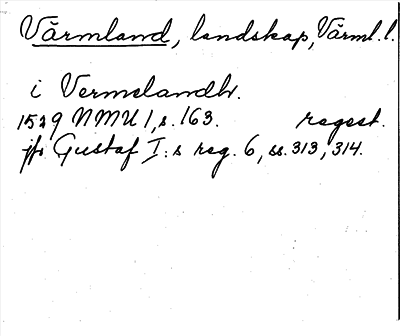 Värmland, landskap, Värml. l.
i Vermelandh.
1529 NMU 1, s. 163. regest.
jfr Gustaf I:s reg. 6, ss. 313, 314.